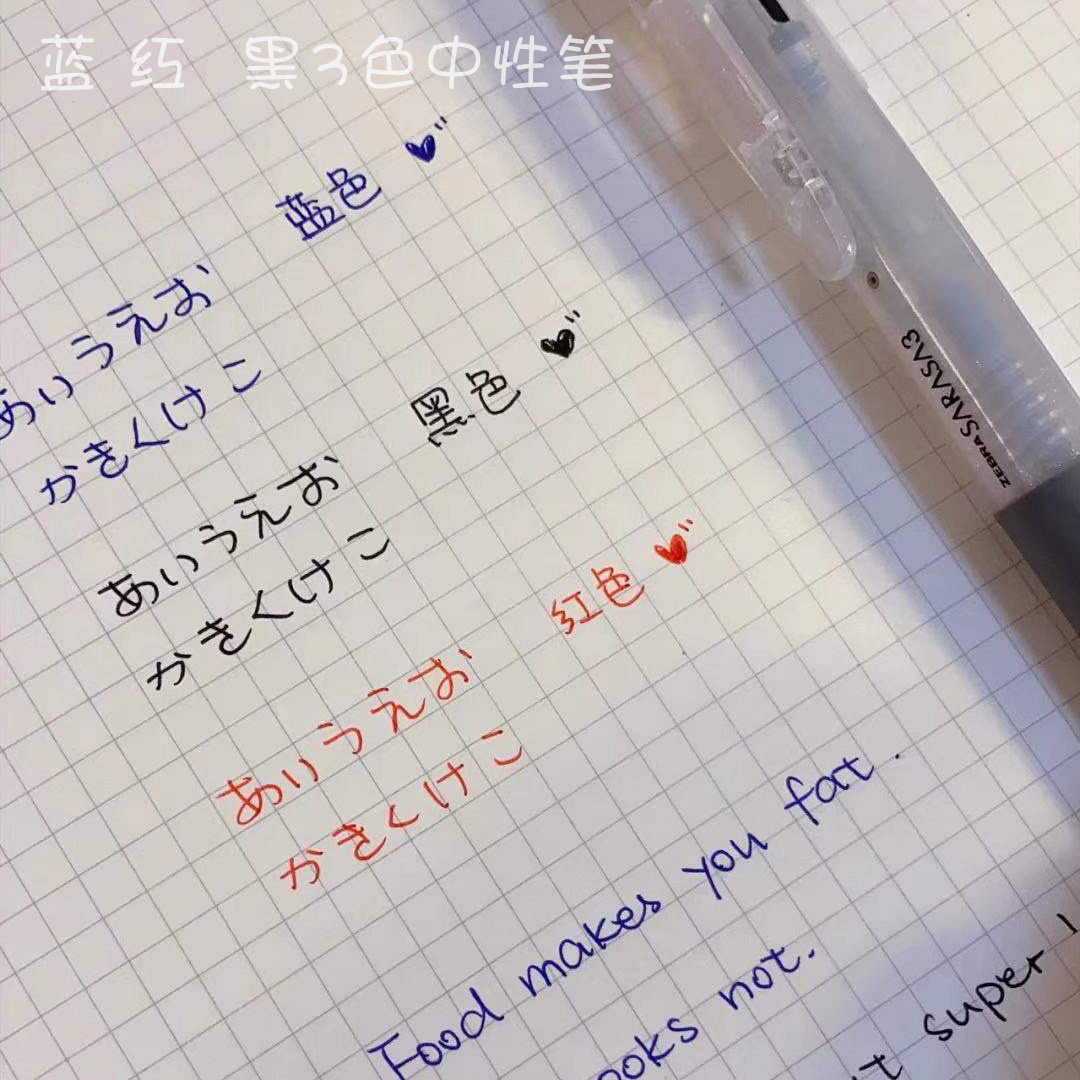 蓝 红 黑3色中性笔
蓝色
あいうえお
かきくけこ
黑色
あいうえお
かきくけこ
红色
あいうえお
かきくけこ
Food makes you fat.
not.
super
ZEBRA SARASA3